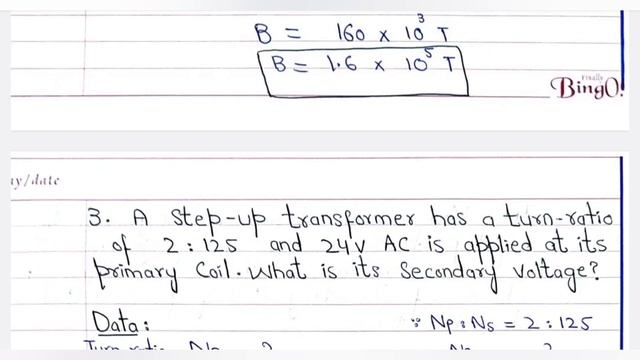 B = 160 x 10³ T
B = 1.6 x 10⁵ T
Finally
BingO!
ay/date
3. A Step-up transformer has a turn-ratio
of 2 : 125 and 24V AC is applied at its
primary Coil. What is its Secondary Voltage?
Data:
∵ Np : Ns = 2 : 125